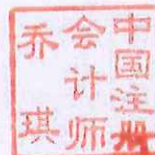 中国注册
会计师
乔琪